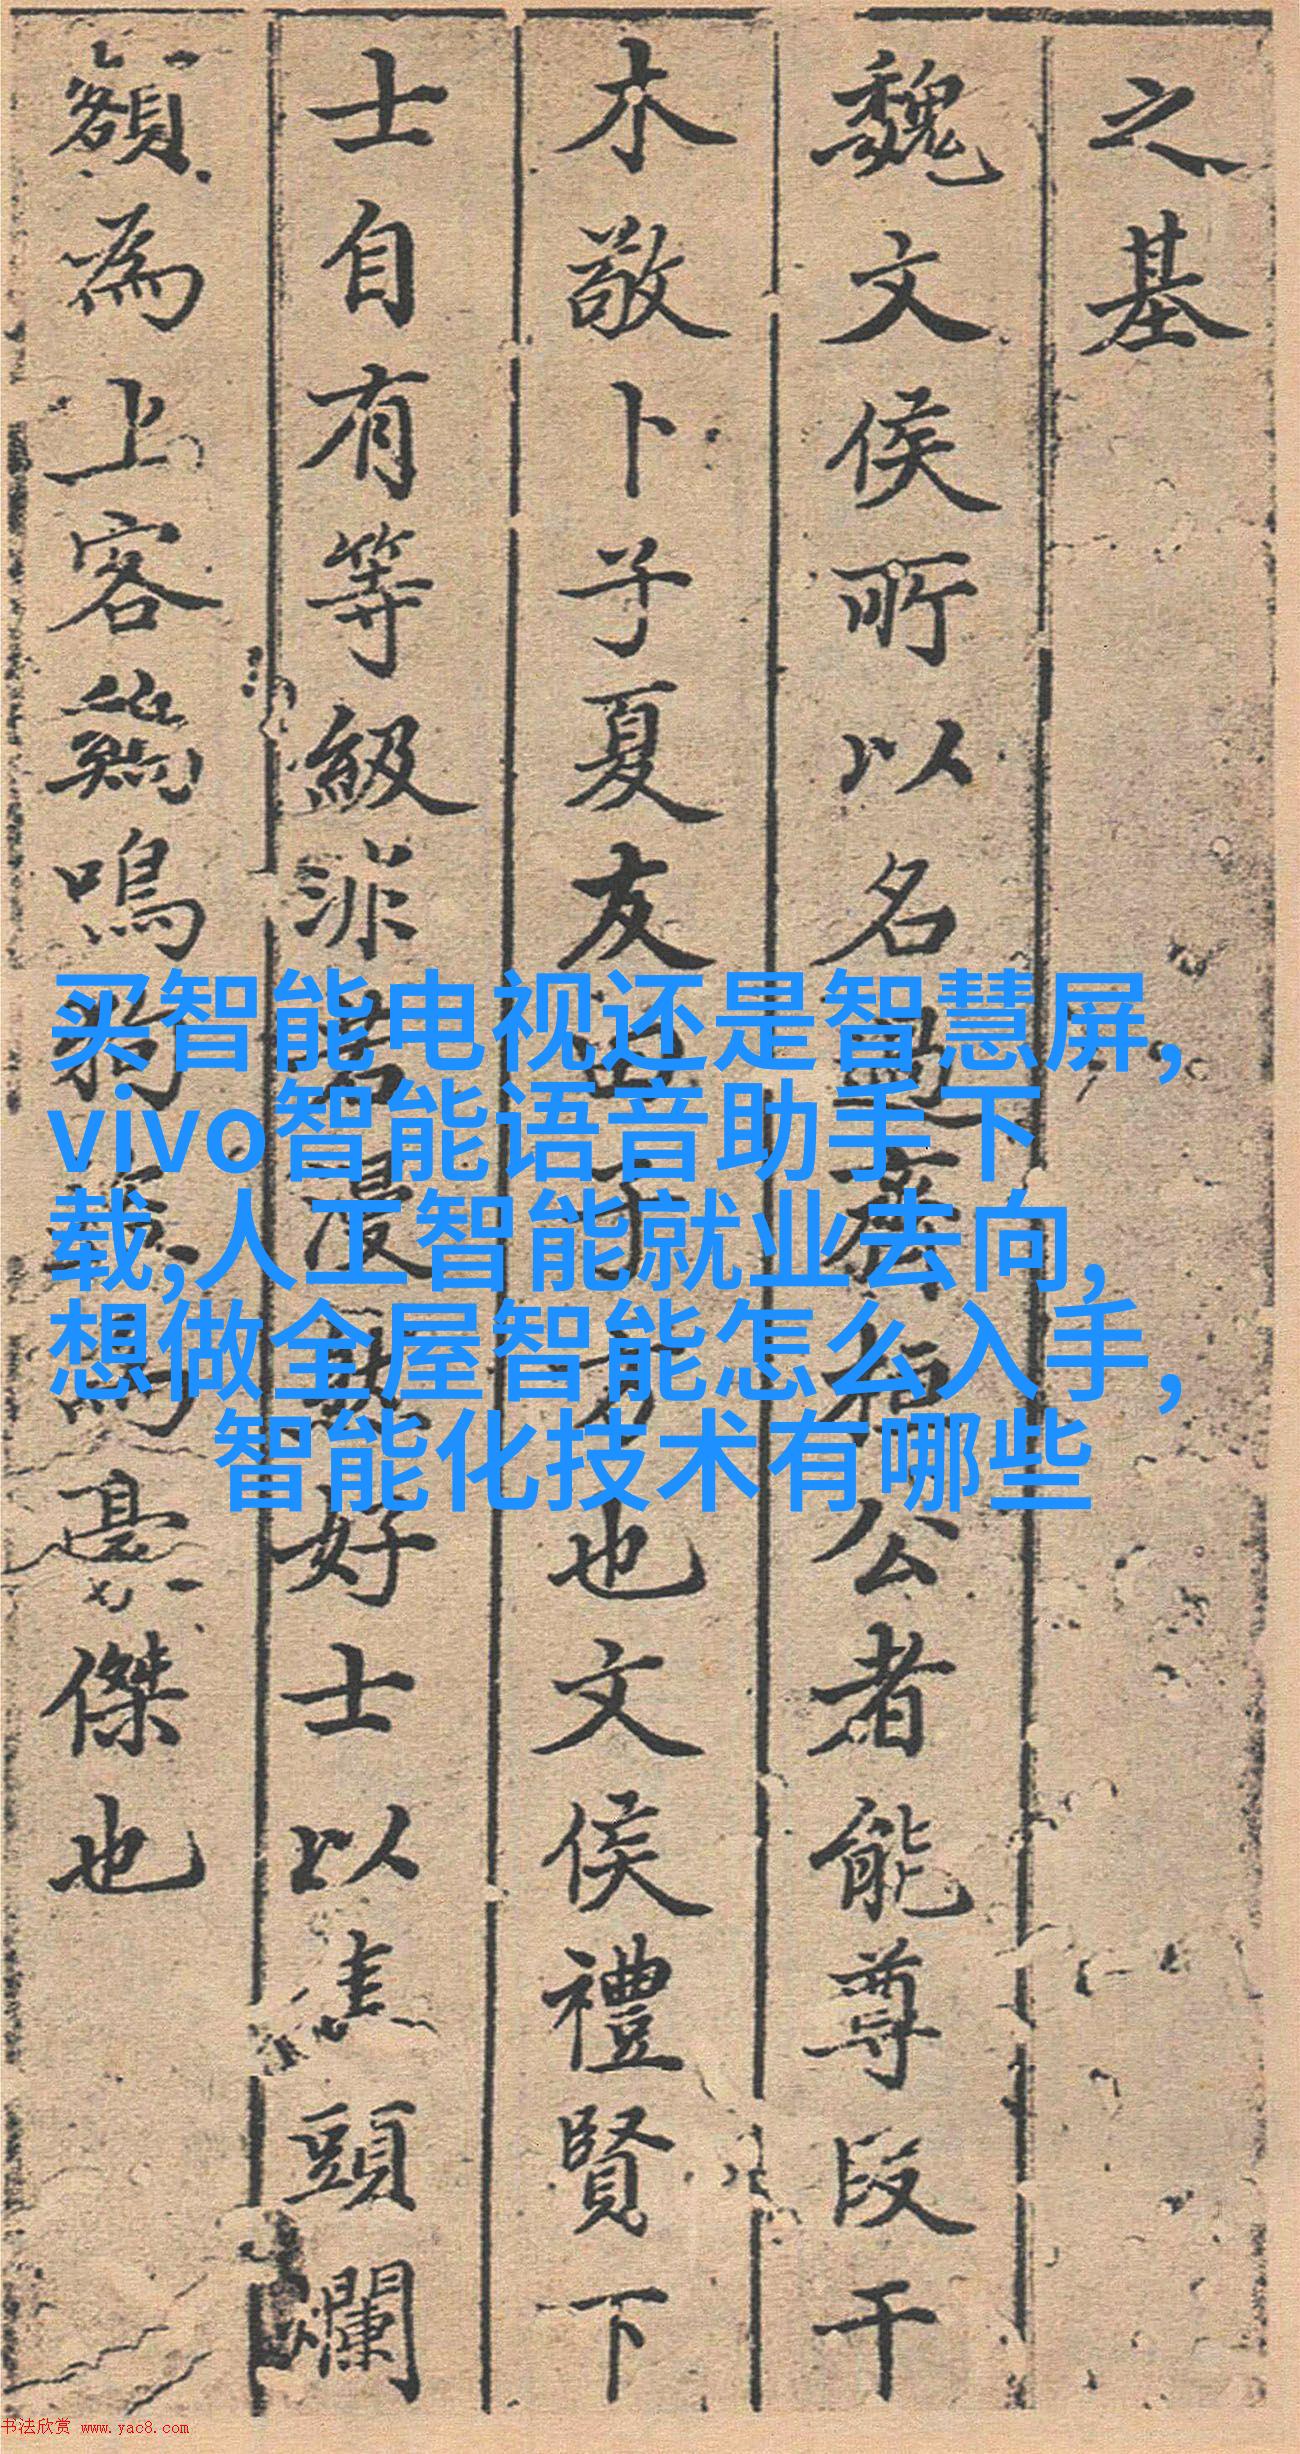 之基
魏文侯所以名過齊桓公者能尊段干
木敬卜子夏友田子方也文侯禮賢下
士自有等級非若漫好士以焦頭爛
額為上客雞鳴狗盜為豪傑也
买智能电视还是智慧屏,
vivo智能语音助手下
载,人工智能就业去向,
想做全屋智能怎么入手,
智能化技术有哪些
书法欣赏 www.yac8.com